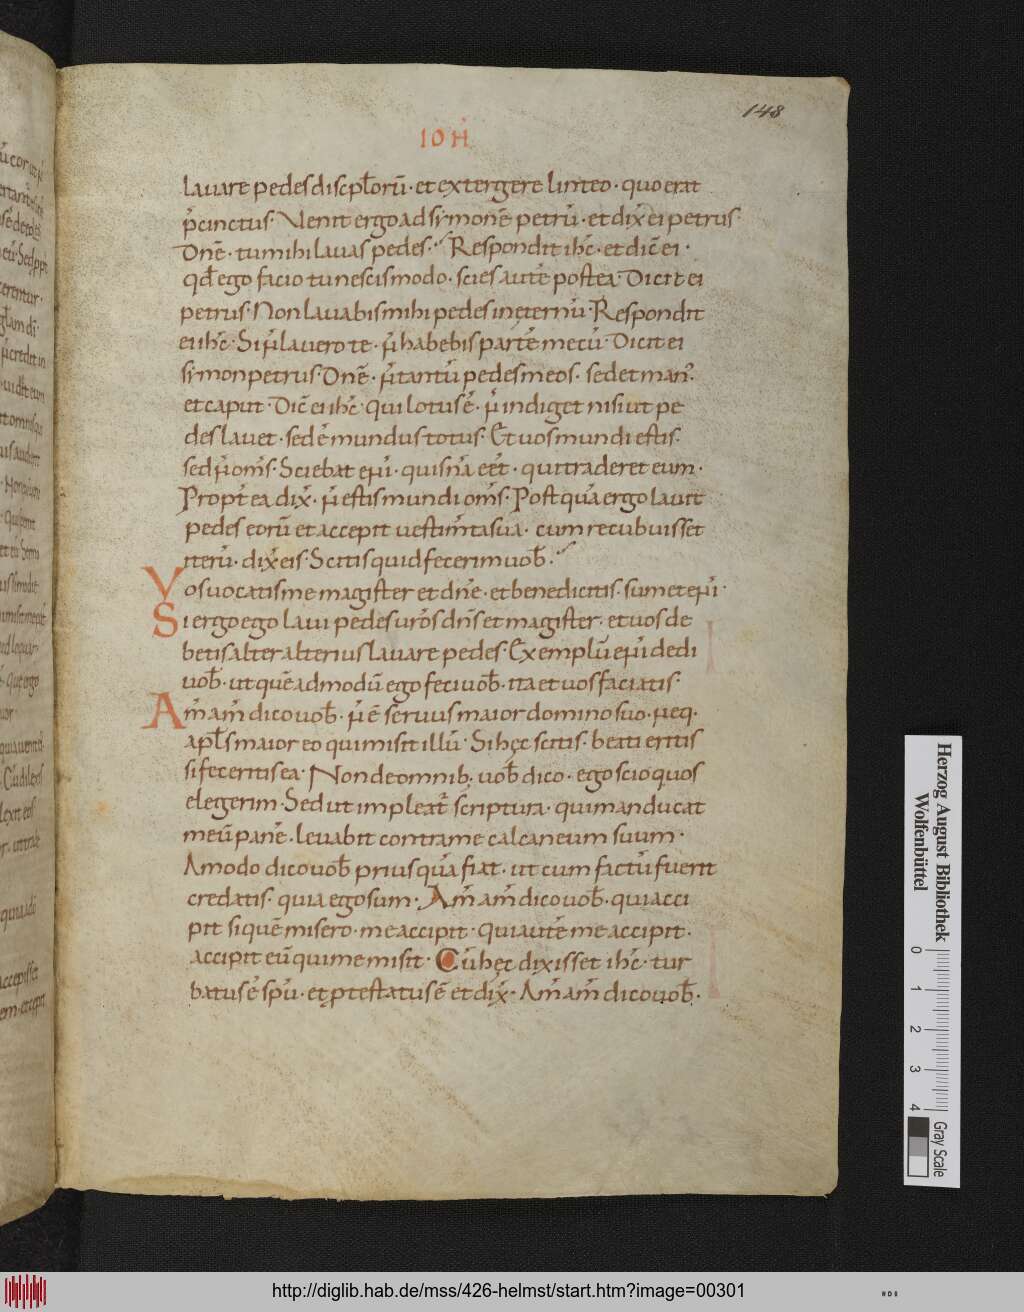 148
IOH̄
lavare pedes discpl̄orū · et extergere linteo · quo erat
p̄cinctus Venit ergo ad symonē petrū · et dix̄ ei petrus ·
Dn̄e · tu mihi lavas pedes · Respondit ih̄c · et dic̄ ei ·
qd̄ ego facio tu nescis modo · scies autē postea · Dicit ei
petrus · Non lavabis mihi pedes in ęternū · Respondit
ei ih̄c · Si n̄ lavero te · n̄ habebis partē mecū · Dicit ei
symon petrus · Dn̄e · n̄ tantū pedes meos · sed et man᾿ ·
et caput · Dic̄ ei ih̄c · qui lotus ē · n̄ indiget nisi ut pe
des lavet · sed ē mundus totus · Et uos mundi estis ·
sed n̄ om̄s · Sciebat eni̅ · quisna̅ ee̅t · qui traderet eum ·
Propt̄ ea dix̄ · n̄ estis mundi om̄s · Postqua̅ ergo lavit
pedes eorū et accepit uestim̄ta sua · cum recubuisset
iterū · dix̄ eis · Scitis quid fecerim uob̄ ·
Vos uocatis me magister et dn̄e · et benedicitis · sum eteni̅ ·
Si ergo ego lavi pedes urōs dn̄s et magister · et uos de
betis alter alterius lavare pedes · Exemplū eni̅ dedi
uob̄ · ut quē admodū ego feci uob̄ · ita et uos faciatis ·
Am̄ am̄ dico uob̄ · n̄ ē seruus maior domino suo · neq ·
apl̄s maior eo qui misit illū · Si hęc scitis · beati eritis
si feceritis ea · Non de omnib; uob̄ dico · ego scio quos
elegerim · Sed ut impleat̄ scriptura · qui manducat
meū panē · levabit contra me calcaneum suum ·
Amodo dico uob̄ priusqua̅ fiat · ut cum factū fuerit
credatis · quia ego sum · Am̄ am̄ dico uob̄ · qui acci
pit si quē misero · me accipit · qui autē me accipit ·
accipit eū qui me misit · Cū hęc dixisset ih̄c · tur
batus ē spū · et ptestatus ē et dix̄ · Am̄ am̄ dico uob̄ ·
Herzog August Bibliothek
Wolfenbüttel
0 1 2 3 4
Gray Scale
http://diglib.hab.de/mss/426-helmst/start.htm?image=00301